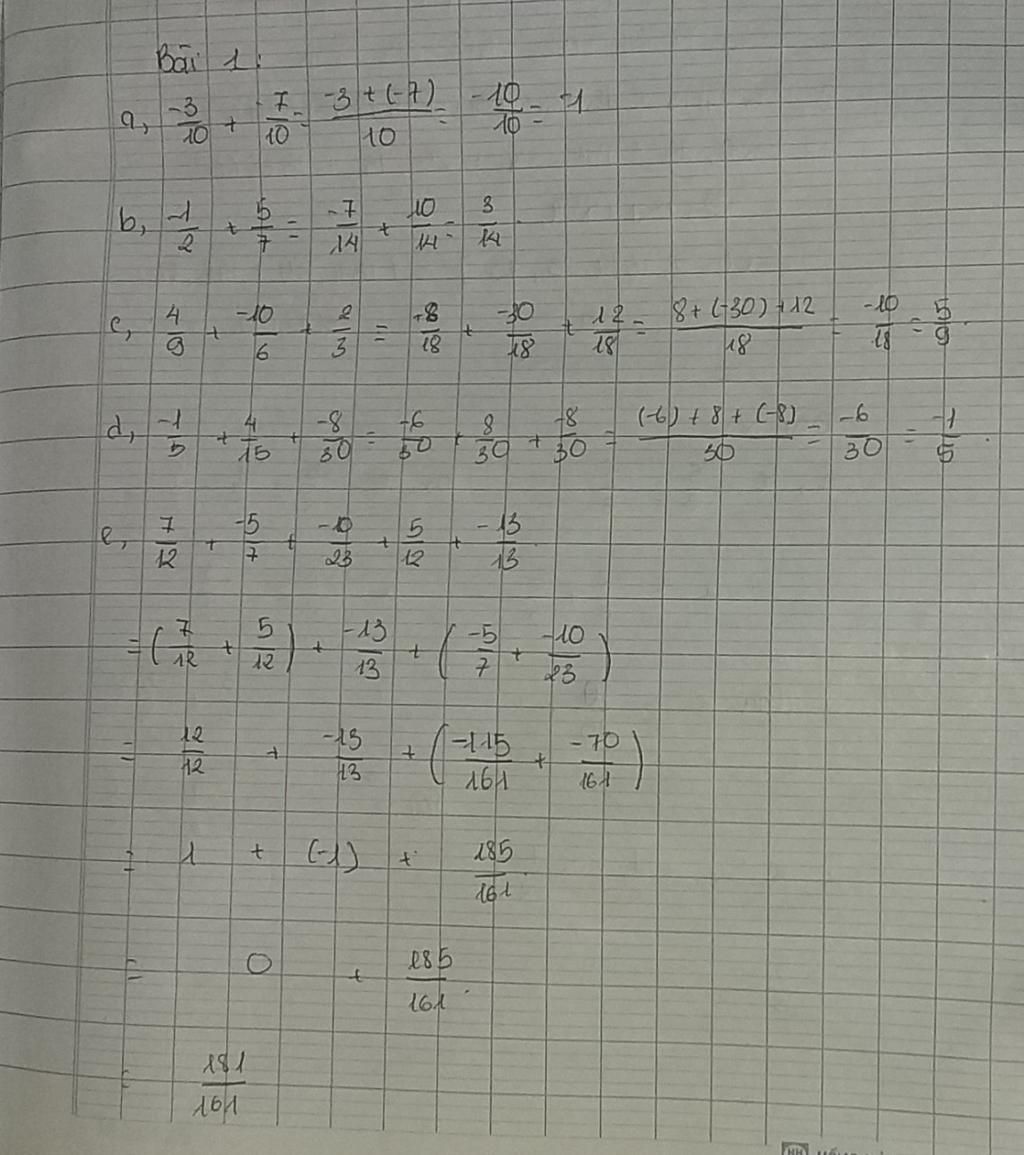 Bài 1:
a, -3/10 + -7/10 = -3 + (-7)/10 = -10/10 = -1
b, -1/2 + 5/7 = -7/14 + 10/14 = 3/14
c, 4/9 + -10/6 + 2/3 = 8/18 + -30/18 + 12/18 = 8 + (-30) + 12/18 = -10/18 = 5/9.
d, -1/5 + 4/15 + -8/30 = -6/30 + 8/30 + -8/30 = (-6) + 8 + (-8)/30 = -6/30 = -1/5.
e, 7/12 + -5/7 + -10/23 + 5/12 + -13/13.
= (7/12 + 5/12) + -13/13 + (-5/7 + -10/23)
= 12/12 + -13/13 + (-115/161 + -70/161)
= 1 + (-1) + 185/161.
= 0 + 185/161.
= 181/161